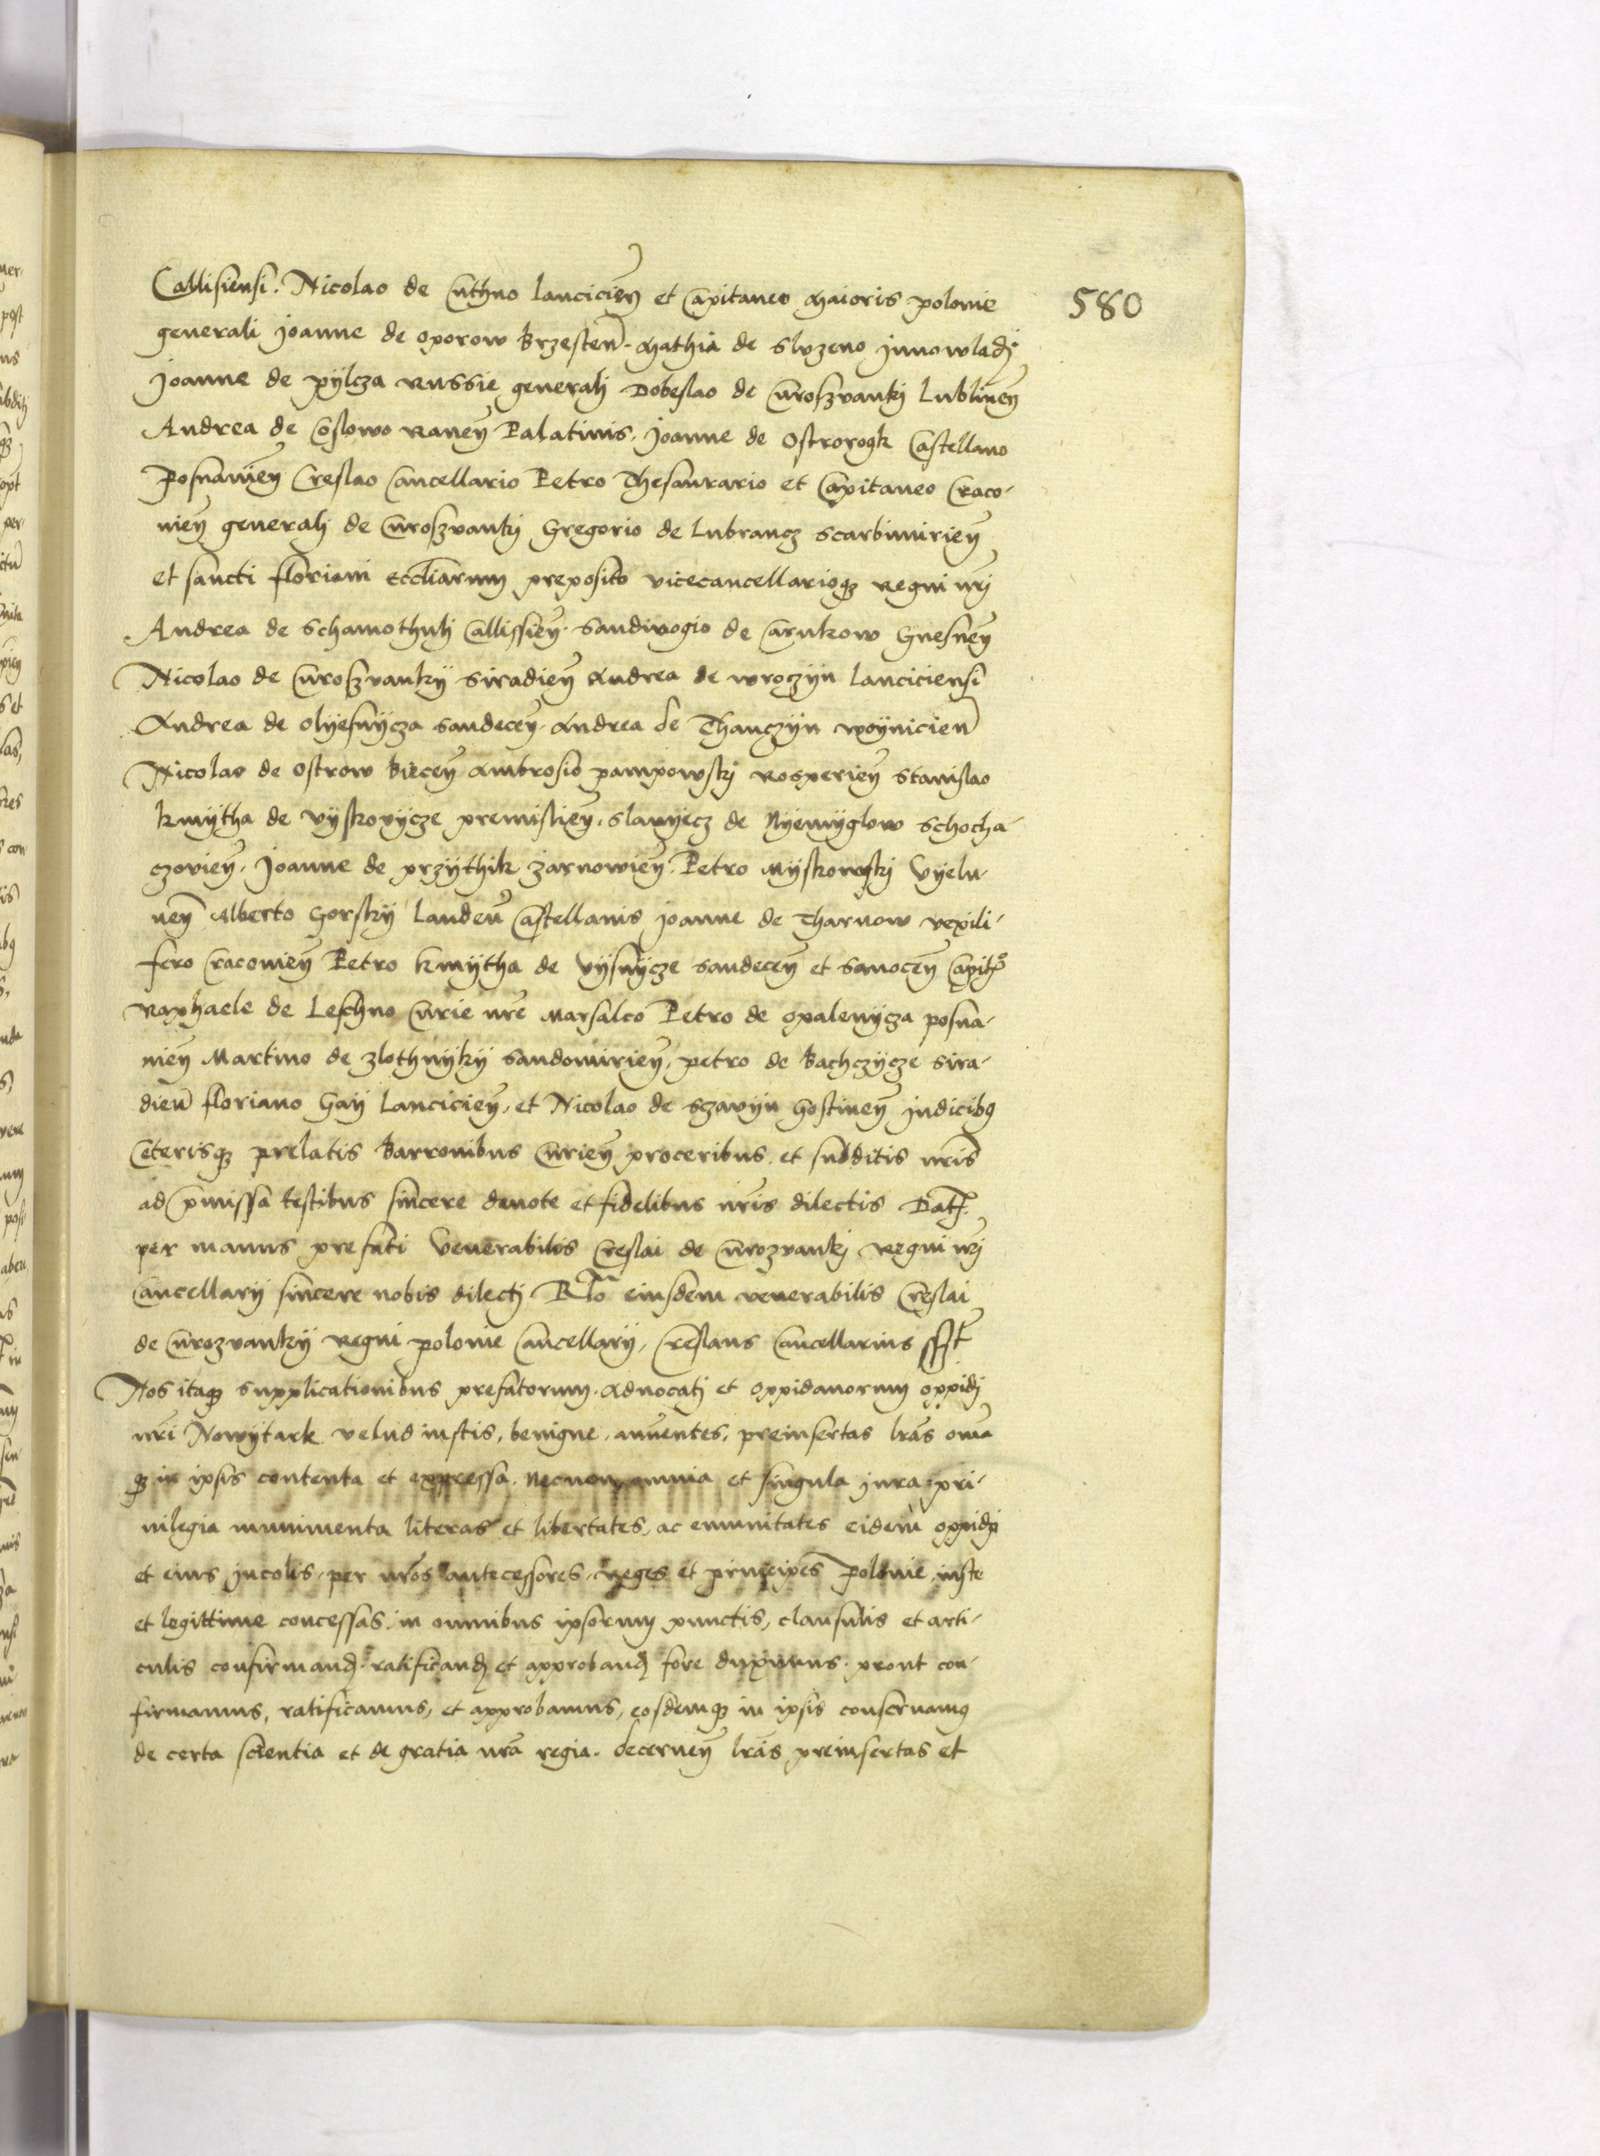 Callisiensi. Nicolao de Cuthno lancicieñ et Capitaneo Maioris polonie
580
generali Joanne de oporow brzesteñ. Mathia de Sluzewo Junowladj
Joanne de pylcza Russie generalj Dobeslao de Curoszvankj Lublineñ
Andrea de Coslowo Raueñ Palatinis. Joanne de Ostrorogk Castellano
Posnanieñ Creslao Cancellario Petro Thesaurario et Capitaneo Craco-
uieñ generalj de Curoszvankj Gregorio de Lubrancz Scarbimirieñ
et sancti floriani eccliarum preposito vicecancellarioq Regni nrj
Andrea de Schamothulj Callissieñ. Sandiuogio de Carnkow Gnesneñ
Nicolao de Curoszvanky Siradieñ Andrea de wroczyn lanciciensi
Andrea de olyesnycza Sandeceñ. Andrea de Thanczyn woynicieñ
Nicolao de ostrow bieceñ Ambrosio pampowskj Rosperieñ Stanislao
kmytha de vyskovycze premislieñ. Slawyecz de Nyemyglow Schocha-
czovieñ. Joanne de przythik zarnowieñ. Petro Myskowskj Vyelu-
neñ Alberto Gorsky Landeñ Castellanis Joanne de Tharnow vexili-
fero Cracouieñ Petro kmytha de Vysnycze Sandeceñ et Sanoceñ Capito
Raphaele de Leschno Curie nre Marsalco Petro de opalenycza posna-
nieñ Martino de zlothnyky Sandomirieñ, petro de bachczycze Sira-
dieñ floriano Gay Lancicieñ, et Nicolao de Szavyn Gostineñ Judicibq
Ceterisq prelatis barronibus Curieñ proceribus et subditis nris
ad pmissa testibus sincere deuote et fidelibus nris dilectis Dat.
per manus prefati Venerabilis Creslai de Curozvankj Regni nrj
Cancellarij sincere nobis dilectj Rlo eiusdem venerabilis Creslai
de Curozvanky Regni polonie Cancellarij, Creslaus Cancellarius sst
Nos itaq supplicationibus prefatorum Aduocatj et oppidanorum oppidj
nri Nowytark velud iustis, benigne annuentes, preinsertas lras omia
q in ipsis contenta et expressa necnon omnia et singula Jura pri-
uilegia munimenta literas et libertates, ac emunitates eidem oppido
et eius Jncolis, per nros antecessores, Reges et principes Polonie, iuste
et legittime concessas in omnibus ipsorum punctis, clausulis et arti-
culis confirmand. ratificand et approband fore duximus. prout con-
firmamus, ratificamus, et approbamus, eosdemq in ipsis conseruamq
de certa scientia et de gratia nra regia. decerneñ lras preinsertas et